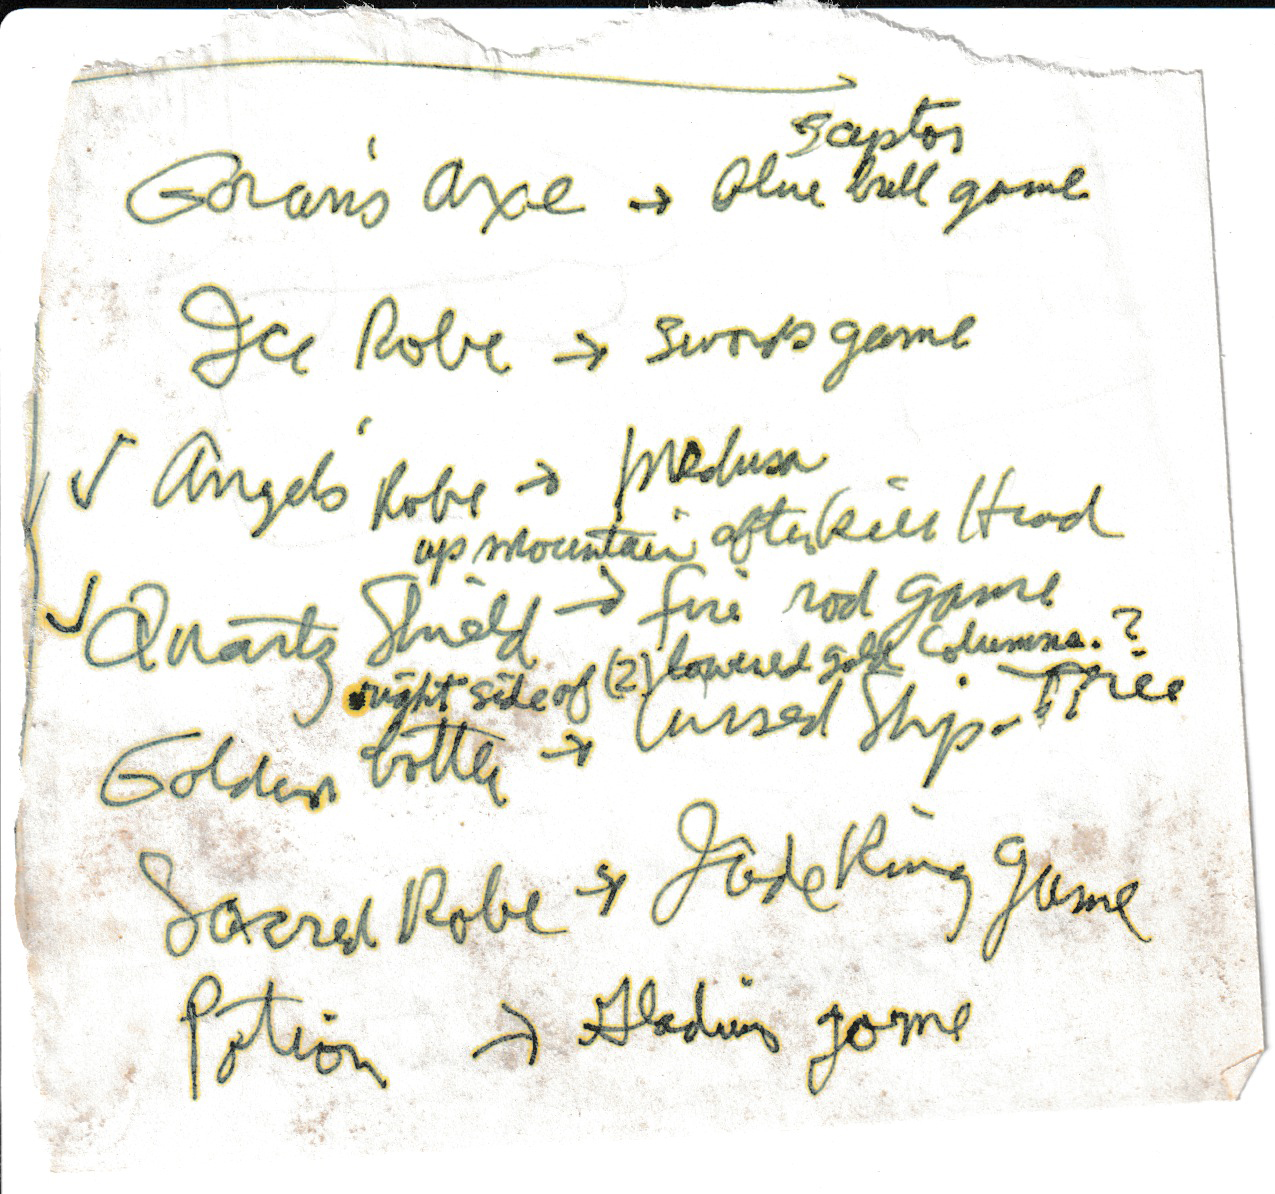 Scepter
Goran's Axe → blue ball game
Ice Robe → Swords game
✓ Angel's Robe → Medusa
up mountain after kill Head
✓ Quartz Shield → fire rod game
right side of (2) lowered gold columns.?
Golden bottle → Cursed Ship - Tree
Sacred Robe → Jade Ring game
Potion → Gladius game